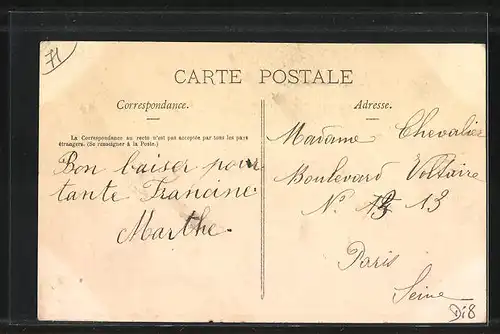 71
CARTE POSTALE
Correspondance.
Adresse.
La Correspondance au recto n'est pas acceptée par tous les pays
étrangers. (Se renseigner à la Poste.)
Bon baiser pour
tante Francine.
Marthe.
Madame Chevalier
Boulevard Voltaire
No 13
Paris
Seine
Di8